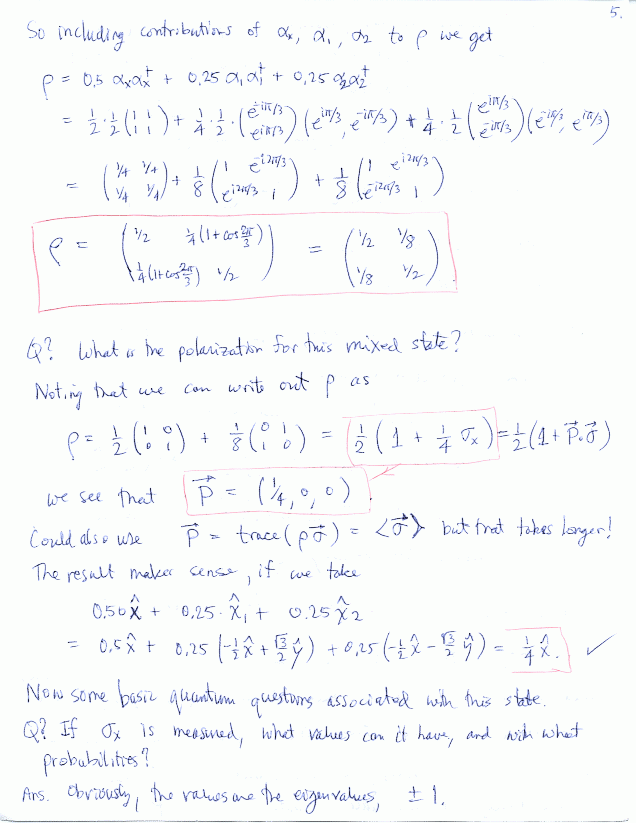 5.
So including contributions of αₓ, α₁, α₂ to ρ we get
ρ = 0.5 αₓαₓ† + 0.25 α₁α₁† + 0.25 α₂α₂†
= 1/2 · 1/2 (1 1; 1 1) + 1/4 · 1/2 · (e^{-iπ/3}; e^{iπ/3}) (e^{iπ/3}, e^{-iπ/3}) + 1/4 · 1/2 (e^{iπ/3}; e^{-iπ/3}) (e^{-iπ/3}, e^{iπ/3})
= (1/4 1/4; 1/4 1/4) + 1/8 (1 e^{-i2π/3}; e^{i2π/3} 1) + 1/8 (1 e^{i2π/3}; e^{-i2π/3} 1)
ρ = (1/2 1/4(1+cos 2π/3); 1/4(1+cos 2π/3) 1/2) = (1/2 1/8; 1/8 1/2).
Q? What is the polarization for this mixed state?
Noting that we can write out ρ as
ρ = 1/2 (1 0; 0 1) + 1/8 (0 1; 1 0) = 1/2 (1 + 1/4 σₓ) = 1/2 (1 + P⃗·σ⃗)
we see that P⃗ = (1/4, 0, 0).
Could also use P⃗ = trace(ρσ⃗) = <σ⃗> but that takes longer!
The result makes sense, if we take
0.50 x̂ + 0.25 · x̂₁ + 0.25 x̂₂
= 0.5 x̂ + 0.25 (-1/2 x̂ + √3/2 ŷ) + 0.25 (-1/2 x̂ - √3/2 ŷ) = 1/4 x̂. ✓
Now some basic quantum questions associated with this state.
Q? If σₓ is measured, what values can it have, and with what
probabilities?
Ans. Obviously, the values are the eigenvalues, ± 1.